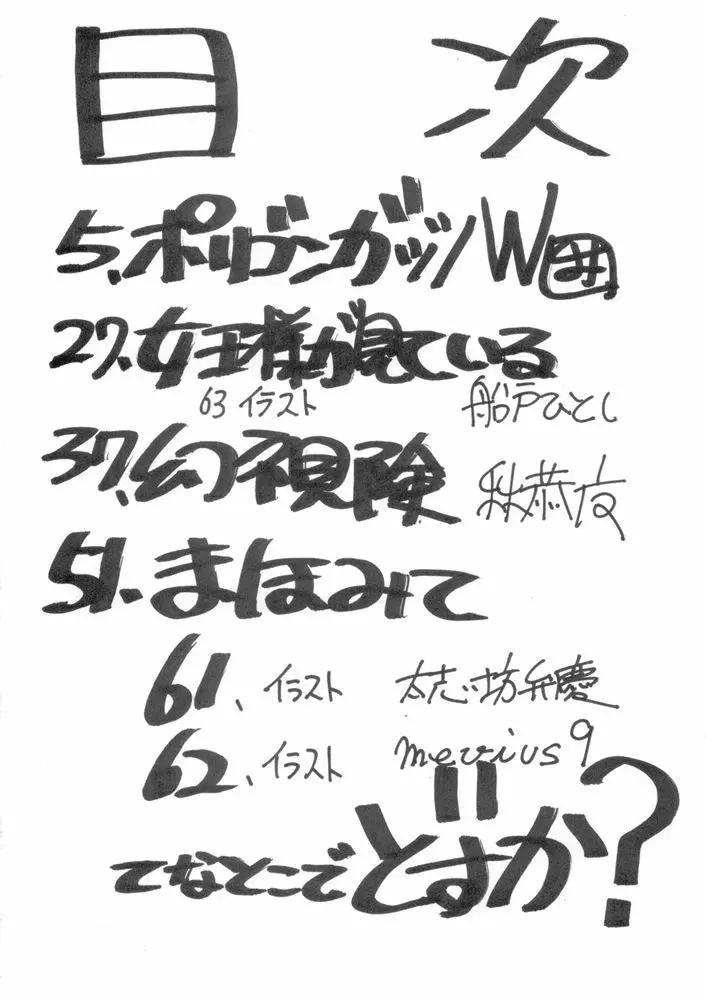 目次
5.ポリゴンガッ!W
27.女王様が見ている
63 イラスト 船戸ひとし
37.幻視険 秋恭
51.まほみて
61、イラスト 太志坊弁慶
62、イラスト mevius9
てなとこでどすか?